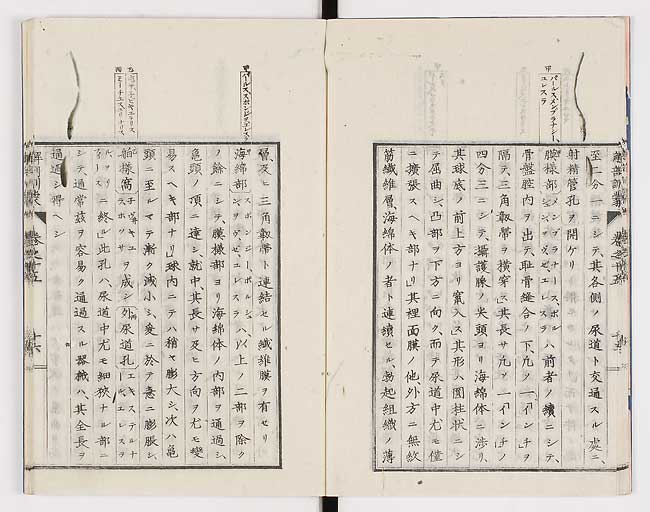 甲
パールスメンブラナシー
ユレスラ
至一分一ニシテ、其各側ノ尿道ト交通スル處ニ、
射精管孔ヲ開ケリ
膜様部
ハ前者ノ續ニシテ、
骨盤腔内ヲ出テ、耻骨縫合ノ下、凡ソ一「インチ」ヲ
隔テ、三角靱帶ヲ横穿ス、其長サ凡ソ一「インチ」ノ
四分三ニシテ、攝護腺ノ尖頭ヨリ海綿体ニ渉リ、
其球底ノ前上方ヨリ竄入ス、其形ハ圓柱状ニシ
テ屈曲シ、凸部ヲ下方ニ向ク、而テ尿道中尤モ僅
ニ擴張スヘキ部ナリ、其裡面膜ノ他外方ニ無紋
筋纖維層、海綿体ノ者ト連續セル、勃起組織ノ薄
解剖訓蒙
巻之十五
甲
乙
丙
層及ヒ三角靱帶ト連結セル纖維膜ヲ有セリ
海綿部
ハ、以上ノ二部ヲ除ク
ノ餘ニシテ、膜様部ヨリ海綿体ノ内部ヲ通過シ、
龜頭ノ頂ニ達シ、就中、其長サ及ヒ方向ヲ尤モ變
易スヘキ部ナリ、球内ニテハ稍ヤ膨大シ、次ハ龜
頭ニ至ルマテ漸ク減小シ、爰ニ於テ意ニ膨脹シ、
舶様窩
ヲ成シ、外尿道孔
ニ終ル、此孔ハ、尿道中尤モ細狹ナル部ニ
シテ、通常茲ヲ容易ク通過スル器械ハ、其全長ヲ
通過シ得ヘシ
解剖訓蒙
巻之十五
十六